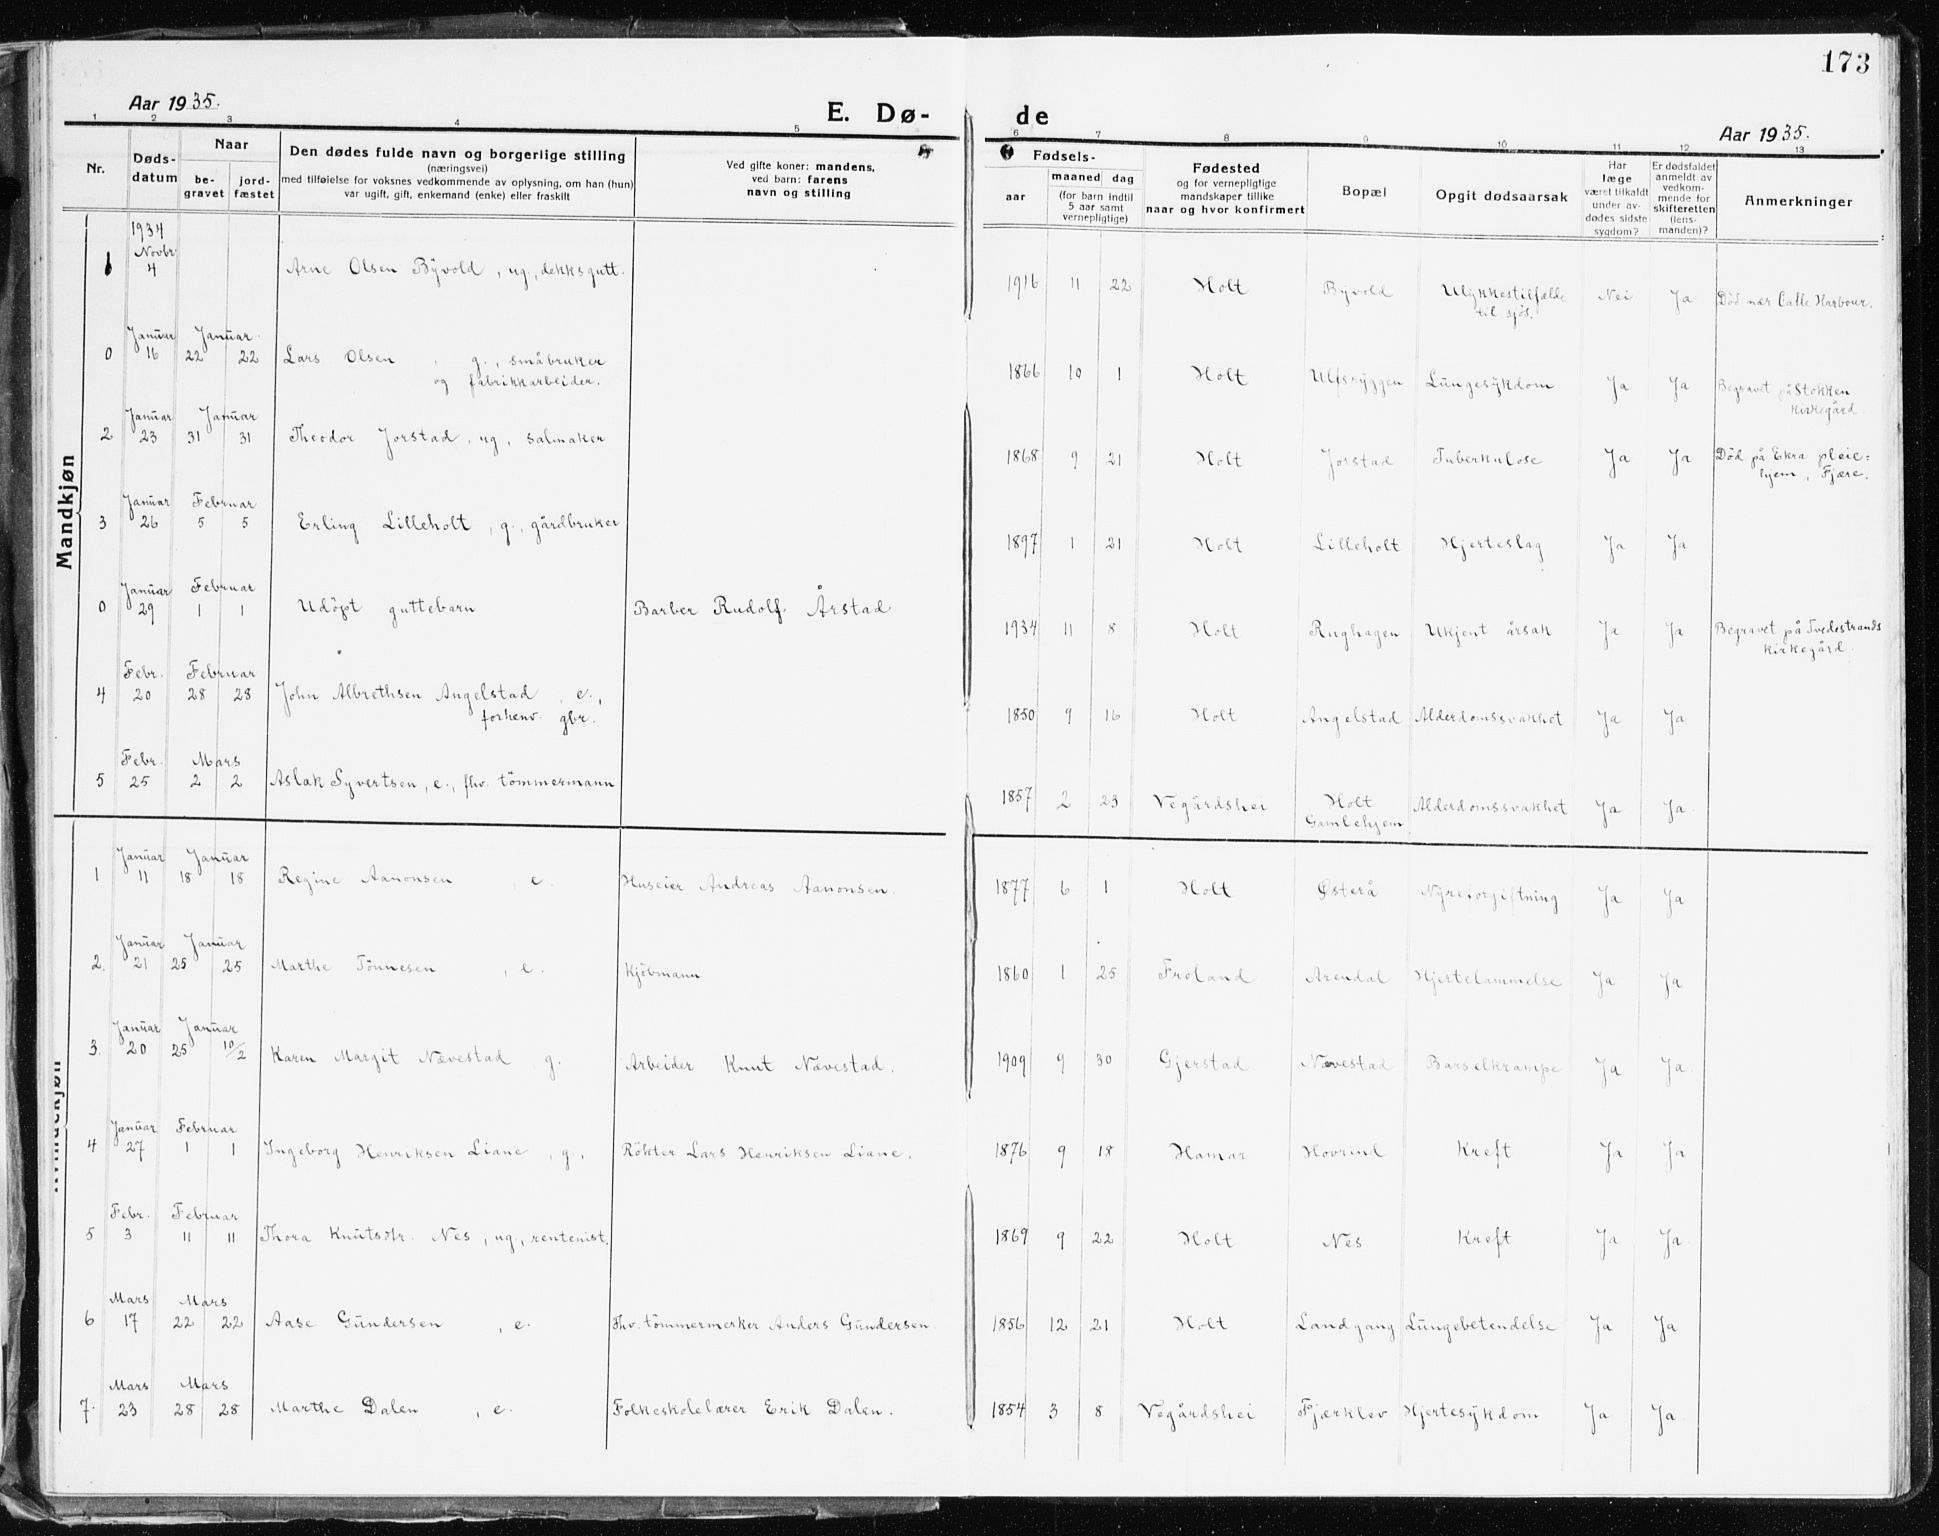 173
Aar 1935.
E. Dø-
de
Aar 1935.
1 2 3 4 5
6 7 8 9 10 11 12 13
Nr.
Døds-
datum
Naar
be-
gravet
jord-
fæstet
Den dødes fulde navn og borgerlige stilling
(næringsvei)
med tilføielse for voksnes vedkommende av oplysning, om han (hun)
var ugift, gift, enkemand (enke) eller fraskilt
Ved gifte koner: mandens,
ved barn: farens
navn og stilling
Fødsels-
aar
maaned dag
(for barn indtil
5 aar samt
vernepligtige)
Fødested
og for vernepligtige
mandskaper tillike
naar og hvor konfirmert
Bopæl
Opgit dødsaarsak
Har
læge
været tilkaldt
under av-
dødes sidste
sygdom?
Er dødsfaldet
anmeldt av
vedkom-
mende for
skifteretten
(lens-
manden)?
Anmerkninger
Mandkjøn
1934
Novbr.
1 4 Arne Olsen Byvold, ug., dekksgutt. 1916 11 22 Holt Byvold Ulykkestilfælde Nei Ja Død nær Catle Harbour.
til sjøs.
Januar Januar
0 16 22 22 Lars Olsen, g., småbruker 1866 10 1 Holt Ulfsryggen Lungesykdom Ja Ja Begravet på Stokken
og fabrikkarbeider. kirkegård.
Januar Januar
2 23 31 31 Theodor Jorstad, ug, salmaker 1868 9 21 Holt Jorstad Tuberkulose Ja Ja Død på Ekra pleie=
hjem, Fjære.
Januar Februar
3 26 5 5 Erling Lilleholt, g., gårdbruker 1897 1 21 Holt Lilleholt Hjerteslag Ja Ja
Januar Februar
0 29 1 1 Udöpt guttebarn Barber Rudolf Årstad 1934 11 8 Holt Rughagen Ukjent årsak Ja Ja Begravet på Tvedestrands
kirkegård.
Febr. Februar
4 20 28 28 John Albrethsen Angelstad, e., 1850 9 16 Holt Angelstad Alderdomssvakhet Ja Ja
forhenv. gbr.
Febr. Mars
5 25 2 2 Aslak Syvertsen, e., fhv. tömmermann 1857 2 23 Vegårdshei Holt Alderdomssvakhet Ja Ja.
Gamlehjem
Kvindekjøn
Januar Januar
1 11 18 18 Regine Aanonsen, e. Huseier Andreas Aanonsen. 1877 6 1 Holt Østerå Nyreforgiftning Ja Ja
Januar Januar
2. 21 25 25 Marthe Tönnesen, e. Kjöbmann 1860 1 25 Froland Arendal Hjertelammelse Ja Ja
Januar Januar
3. 20 25 10/2 Karen Margit Nævestad, g. Arbeider Knut Nævestad. 1909 9 30 Gjerstad Nævestad Barselkrampe Ja Ja.
Januar Februar
4 27 1 1 Ingeborg Henriksen Liane, g. Rökter Lars Henriksen Liane. 1876 9 18 Hamar Hovrind Kreft Ja Ja
Febr. Februar
5 3 11 11 Thora Knutsdtr. Nes, ug., rentenist. 1869 9 22 Holt Nes Kreft Ja Ja.
Mars Mars
6 17 22 22 Aase Gundersen, e. Fhv. tömmermerker Anders Gundersen. 1856 12 21 Holt Landgang Lungebetendelse Ja Ja
Mars Mars
7. 23 28 28 Marthe Dalen, e. Folkeskolelærer Erik Dalen. 1854 3 8 Vegårdshei Fjærklev Hjertesykdom Ja Ja.